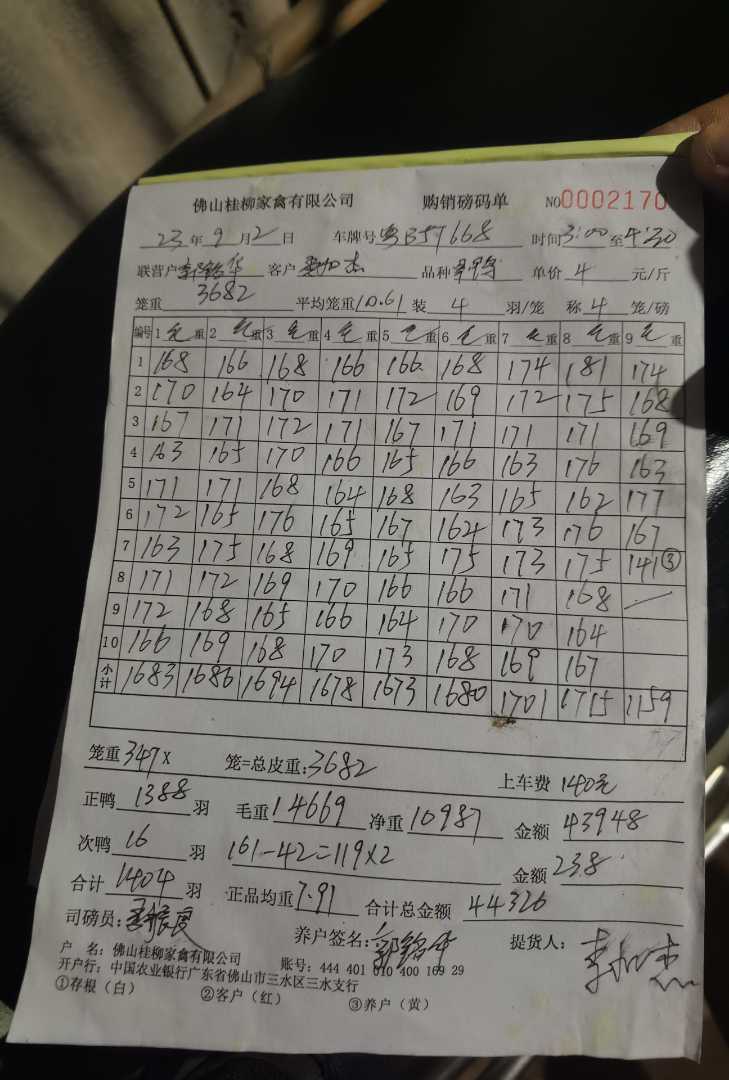 佛山桂柳家禽有限公司 购销磅码单 NO0002170
23年9月2日 车牌号粤B57668 时间3:00至4:30
联营户郭铭华 客户 品种 单价 4 元/斤
笼重 3682 平均笼重10.61 装 4 羽/笼 称 4 笼/磅
编号 1 毛重 2 毛重 3 毛重 4 毛重 5 毛重 6 毛重 7 毛重 8 毛重 9 毛重
1 168 166 168 166 166 168 174 181 174
2 170 164 170 171 172 169 172 175 168
3 167 171 172 171 167 171 171 171 169
4 163 165 170 166 165 166 163 176 163
5 171 171 168 164 168 163 165 162 177
6 172 165 176 165 167 164 173 176 167
7 163 175 168 169 165 175 173 175 141③
8 171 172 169 170 166 166 171 168
9 172 168 165 166 164 170 170 164
10 166 169 168 170 173 168 169 167
小计 1683 1686 1694 1678 1673 1680 1701 1715 1159
笼重 347 X 笼=总皮重:3682 上车费 140元
正鸭 1388 羽 毛重 14669 净重 10987 金额 43948
次鸭 16 羽 161-42=119X2 金额 238
合计 1404 羽 正品均重 7.91 合计总金额 44326
司磅员: 养户签名:郭铭华 提货人:
户 名: 佛山桂柳家禽有限公司 账号: 444 401 010 400 169 29
开户行: 中国农业银行广东省佛山市三水区三水支行
①存根(白) ②客户(红) ③养户(黄)